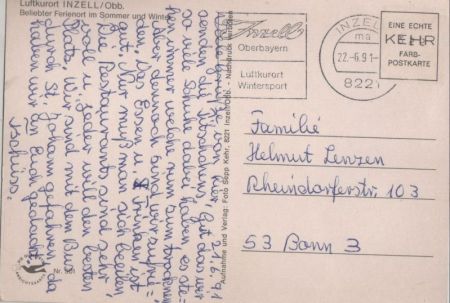 Luftkurort INZELL/Obb.
Beliebter Ferienort im Sommer und Winter
21.6.91
senden die
so viel Schuhe dabei haben es ste-
hen immer welche rum zum trocknen
Aber dennoch sind wir zufrie-
den. Das Essen u. Trinken ist
gut. Nur muß man sich beeilen
Die Restaurants sind sehr
voll u. jeder will den besten
Platz. Wir sind mit dem Bus
durch St. Johann gefahren, da
haben wir an Euch gedacht.
Tschüss.
Nr. 301
Aufnahme und Verlag: Foto Sepp Kehr, 8221 Inzell/Obb. - Nachdruck verboten
Inzell
Oberbayern
Luftkurort
Wintersport
INZELL
ma
22.-6.91
8221
EINE ECHTE
KEHR
FARB-
POSTKARTE
Familie
Helmut Lenzen
Rheindorferstr. 103
53 Bonn 3